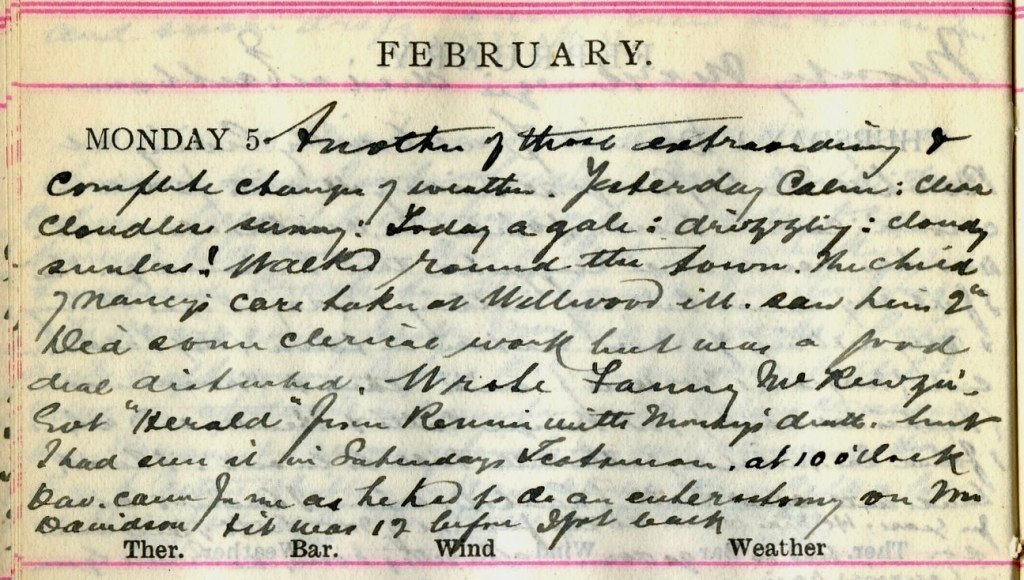 FEBRUARY.
MONDAY 5. Another of those extraordinary &
complete changes of weather. Yesterday Calm: clear
cloudless sunny: Today a gale: drizzling: cloudy
sunless! Walked round the town. The child
of Nancy's care taker at Wellwood ill. saw him
Did some clerical work but was a good
deal disturbed. Wrote Fanny McKenzie.
Got "Herald" from Rennie with Morley's death. but
I had seen it in Saturdays Scotsman. at 10 o'clock
Dav. came for me as he had to do an enterostomy on Mrs
Davidson & it was 12 before I got back
Ther. Bar. Wind Weather